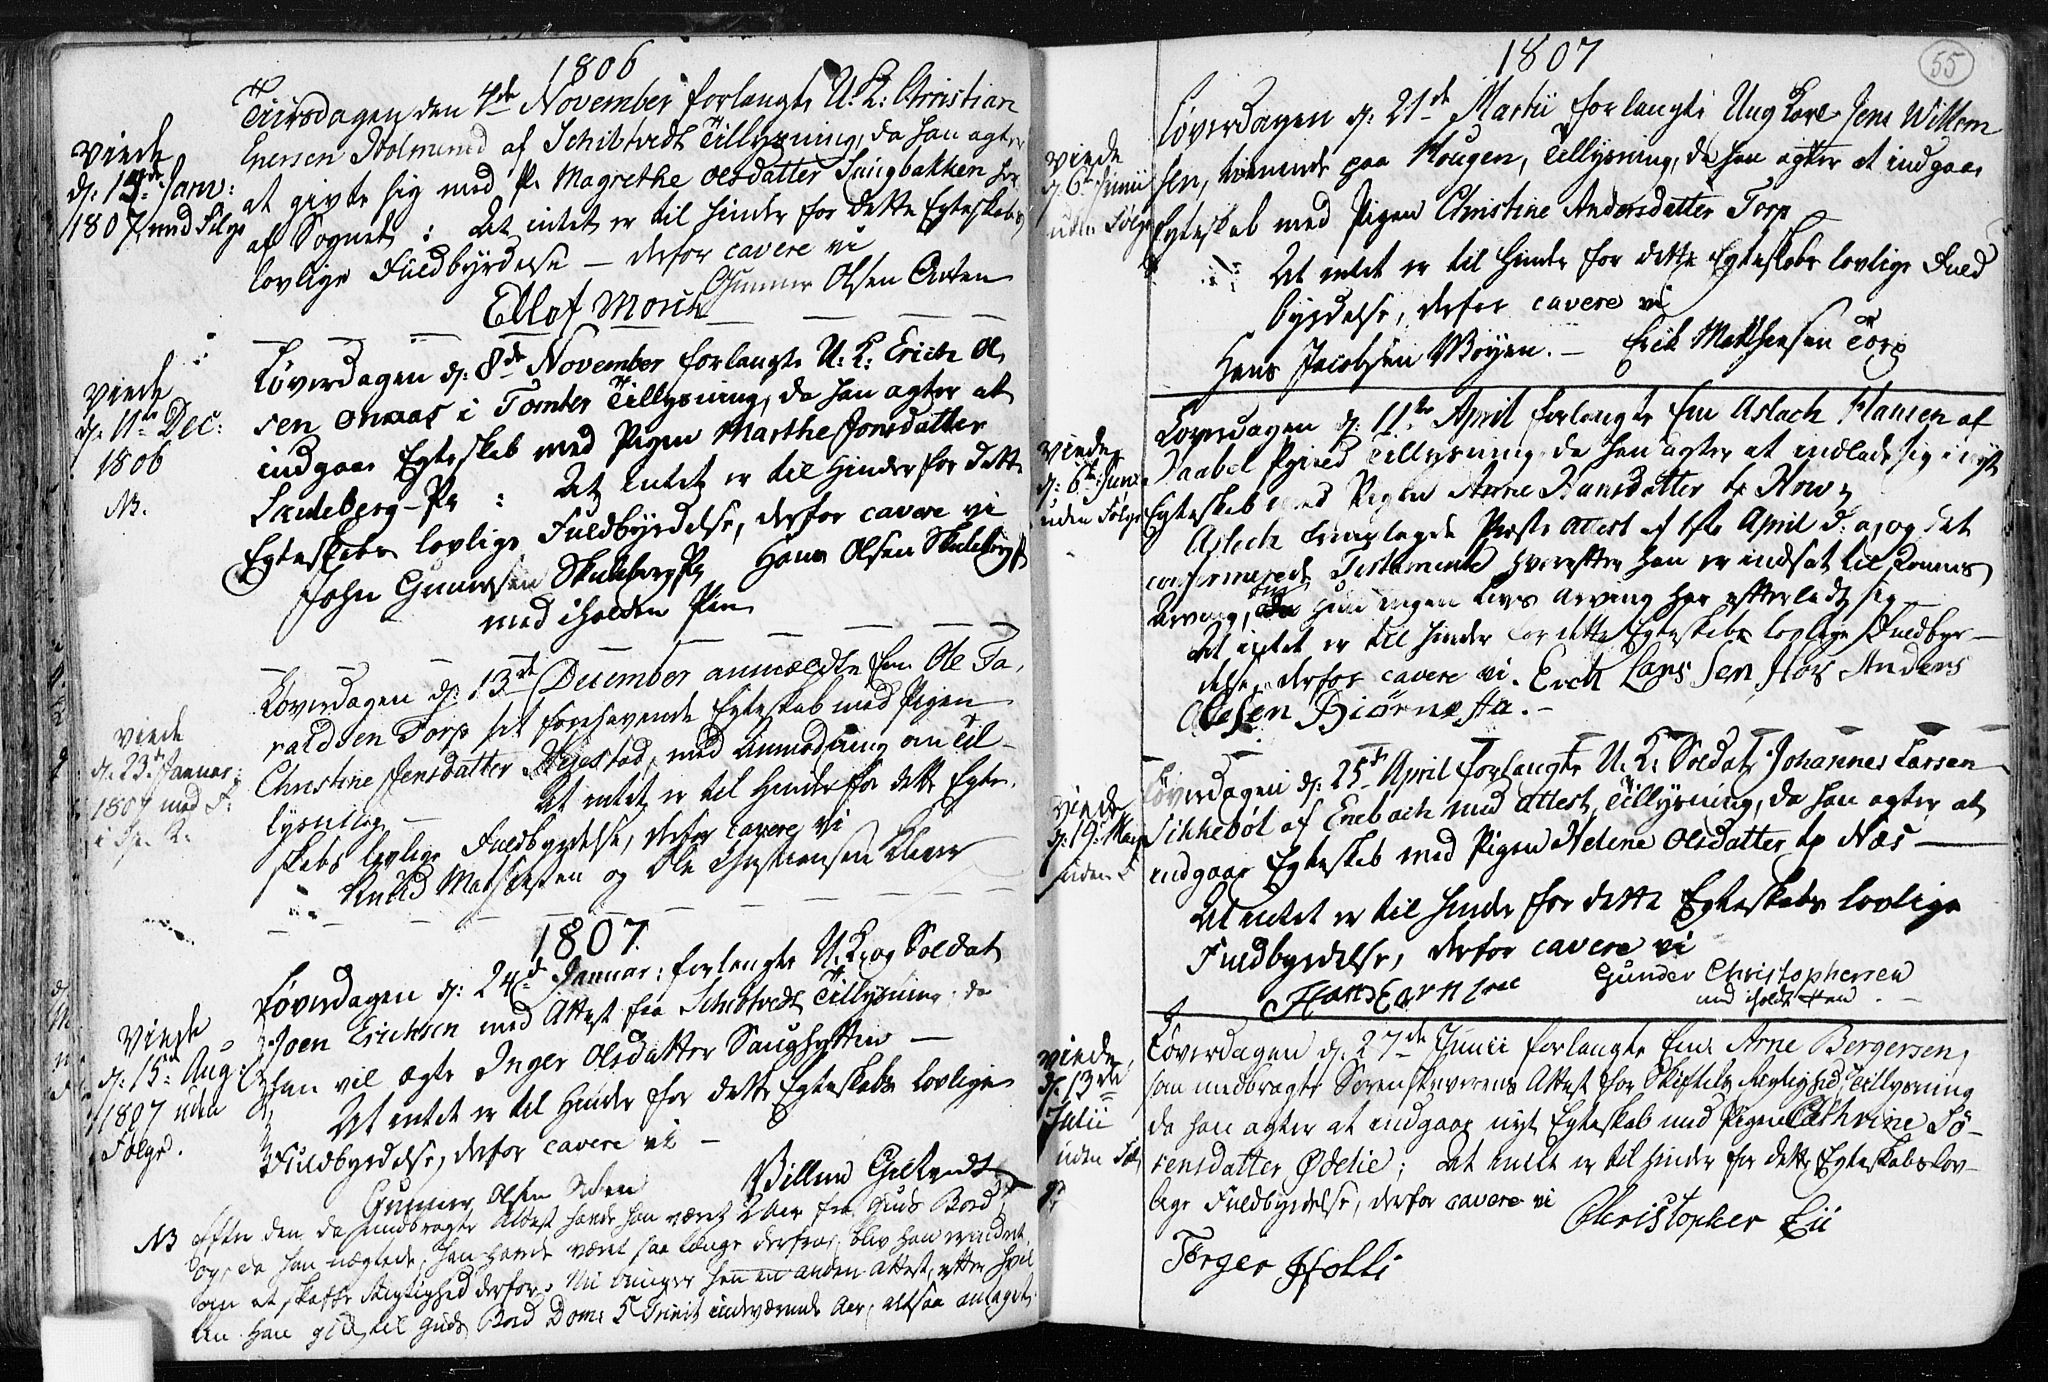 1806
Tiirsdagen den 4de November forlangte U: K: Christian
Enersen Holmsrud af Schibtvedt Tillysning, da han agter
at givte sig med P. Magrethe Olsdatter Saugbakken her
af Sognet : Det intet er til Hinder for dette Egteskabs
lovlige Fuldbyrdelse — derfor cavere vi
Gunner Olsen
Ellof Morck
viede
d: 13de Janv:
1807, med Følge
Løverdagen d: 8de November forlangte U: K: Erich Ol
sen i Tomter Tillysning, da han agter at
indgaae Egteskab med Pigen Marthe Jonsdatter
Skuleberg-Pl : Det intet er til Hinder for dette
Egteskabs lovlige Fuldbyrdelse, derfor cavere vi
John Gunersen Skuleberg Pl Hans Olsen Skuleberg Pl
med iholden Pen
viede
d: 11te Dec:
1806
NB.
Løverdagen d: 13de December anmældte Em Ole Ta,
raldsen Torp sit forehavende Egteskab med Pigen
Christine Jensdatter Migestad, med Anmodning om Til-
lysning — Det intet er til Hinder for dette Egte,
skabs lovlige Fuldbyrdelse, derfor cavere vi
Knud Mathiesen og Ole Christiansen
viede
d: 23de Januar:
1807 med F:
i Sp. K.
1807
Løverdagen d: 24de Januar: forlangte U. K. og Soldat
Joen Erichsen med Attest fra Schibtvedt Tillysning, da
han vil ægte Inger Olsdatter Saughytten —
Det intet er til Hinder for dette Egteskabs lovlige
Fuldbyrdelse, derfor cavere vi —
Gunner Olsen
viede
d: 15de Aug:
1807 uden
Følge.
NB efter den da medbragte Attest havde han været 2 Aar fra Guds Bord,
og da han nægtede, han havde været saa længe derfra, blev han mindet
om at skaffe Rigtighed derfor. Nu bringer han en anden Attest, efter hvil
ken han gik til Guds Bord Dom: 5 Trinit: indeværende Aar, altsaa antaget.
1807
55
Løverdagen d: 21de Martii forlangte Ung Karl Jens Willum
sen, tienende paa Hougen, Tillysning, da han agter at indgaae
Egteskab med Pigen Christine Andersdatter Torp
Det intet er til Hinder for dette Egteskabs lovlige Fuld
byrdelse, derfor cavere vi
Hans Jacobsen Møyen. — Erik Mathiesen Torp
viede
d: 6te Junii
uden Følge
Løverdagen d: 11te April forlangte Em Aslach Hansen af
Haabøl Tillysning, da han agter at indlade sig i nyt
Egteskab med Pigen Anne Hansdatter
Aslach fremlagde Præste Attest af 1ste April d: a: og det
confirmerede Testamente hvorefter han er indsat til Konens
Arving, da hun ingen Livs Arving har efterladt sig —
Det intet er til Hinder for dette Egteskabs lovlige Fuldbyr-
delse, derfor cavere vi. Erck Lars Sen Hos Anders
Olesen Biørnesta. —
viede
d: 6te Junii
uden Følge
Løverdagen d: 25de April forlangte U. K. Soldat Johannes Larsen
Sikkebøl af Enebach med Attest, Tillysning, da han agter at
indgaae Egteskab med Pigen Helene Olsdatter Næs —
Det intet er til Hinder for dette Egteskabs lovlige
Fuldbyrdelse, derfor cavere vi
Gunder Christophersen
med iholdt Pen
viede
d: 19: May
uden F
Løverdagen d: 27de Junii forlangte Em: Arne Bergersen,
som medbragte Sorenskriverens Attest for Skiftets Rigtighed, Tillysning
da han agter at indgaae nyt Egteskab med Pigen Cathrine Sø-
rensdatter Ødelie; Det intet er til Hinder for dette Egteskabs lov-
lige Fuldbyrdelse, derfor cavere vi
Christopher Lii
Torger Holli
viede
d: 13de
Julii
uden Føl
ge